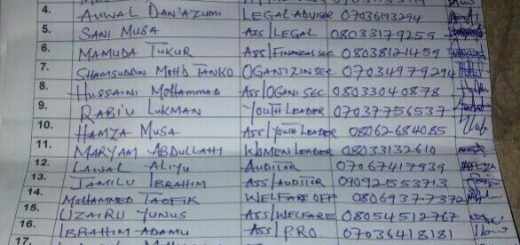 4. AUWAL DAN'AZUMI LEGAL ADVISER 07036193294
5. SANI MUSA ASS/LEGAL 08033179259
6. MAMUDA TUKUR ASS/FINANCIAL SEC 08038121459
7. SHAMSUDDIN MOH'D TANKO OGANIZIN SEC 07034979294
8. HUSSAINI MOHAMMAD ASS/OGANI SEC 08033040878
9. RABI'U LUKMAN YOUTH LEADER 07037756537
10. HAMZA MUSA ASS/YOUTH LEADER 08062684085
11. MARYAM ABDULLAHI WOMEN LEADER 08033132610
12. LAWAL ALIYU AUDITOR 07067417939
13. JAMILU IBRAHIM ASS/AUDITOR 09092553713
14. MOHAMMED TAOFIK WELFARE OFF 08069377372
15. UZAIRU YUNUS ASS/WELFARE 08054512767
16. IBRAHIM ADAMU ASS/PRO 07036418181
17.